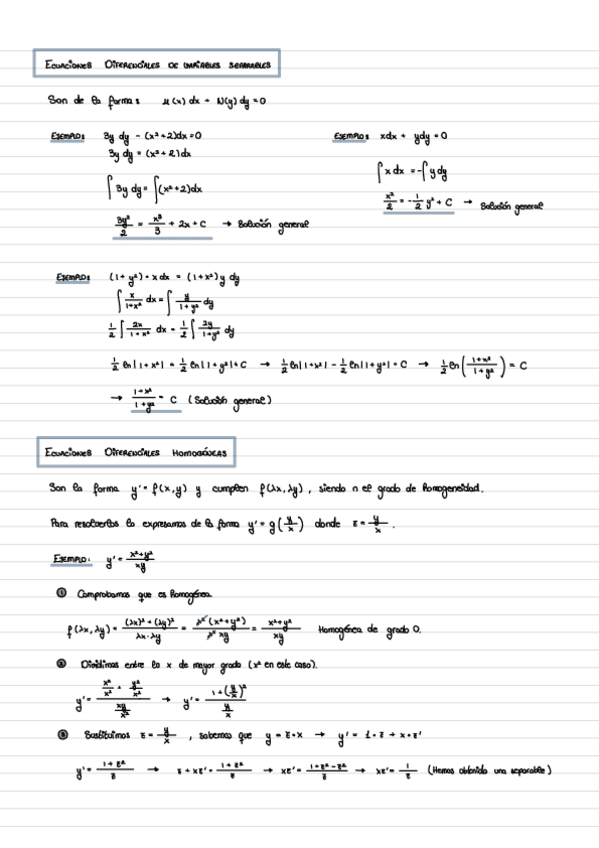 ECUACIONES DIFERENCIALES DE VARIABLES SEPARABLES
Son de la forma: M(x) dx + N(y) dy = 0
EJEMPLO: 3y dy - (x²+2)dx = 0
3y dy = (x²+2)dx
∫ 3y dy = ∫ (x²+2)dx
3y²/2 = x³/3 + 2x + C → Solución general
EJEMPLO: xdx + ydy = 0
∫ x dx = -∫ y dy
x²/2 = -1/2 y² + C → Solución general
EJEMPLO: (1+y²) · x dx = (1+x²) y dy
∫ x/(1+x²) dx = ∫ y/(1+y²) dy
1/2 ∫ 2x/(1+x²) dx = 1/2 ∫ 2y/(1+y²) dy
1/2 ln|1+x²| = 1/2 ln|1+y²| + C → 1/2 ln|1+x²| - 1/2 ln|1+y²| = C → 1/2 ln((1+x²)/(1+y²)) = C
→ (1+x²)/(1+y²) = C (Solución general)
ECUACIONES DIFERENCIALES HOMOGÉNEAS
Son la forma y' = f(x,y) y cumplen f(λx, λy), siendo n el grado de homogeneidad.
Para resolverlas la expresamos de la forma y' = g(y/x) donde z = y/x.
EJEMPLO: y' = (x²+y²)/xy
① Comprobamos que es homogénea.
f(λx, λy) = ((λx)² + (λy)²)/(λx·λy) = λ²(x²+y²)/(λ² xy) = (x²+y²)/xy Homogénea de grado 0.
② Dividimos entre la x de mayor grado (x² en este caso).
y' = (x²/x² + y²/x²)/(xy/x²) → y' = (1+(y/x)²)/(y/x)
③ Sustituimos z = y/x, sabemos que y = z·x → y' = 1·z + x·z'
y' = (1+z²)/z → z + xz' = (1+z²)/z → xz' = (1+z²-z²)/z → xz' = 1/z (Hemos obtenido una separable)